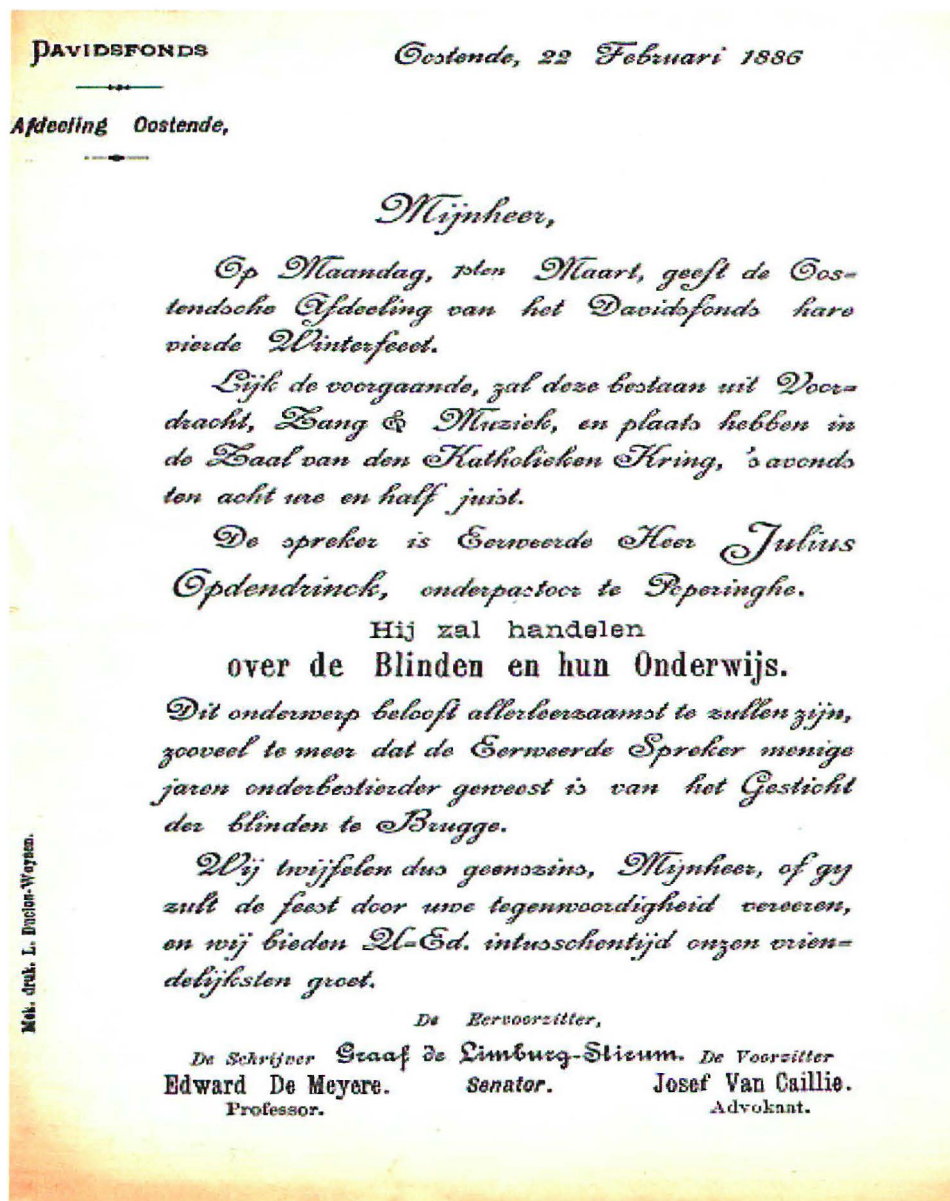 DAVIDSFONDS
Oostende, 22 Februari 1886
Afdeeling Oostende,
Mijnheer,
Op Maandag, 1sten Maart, geeft de Oos=
tendsche Afdeeling van het Davidsfonds hare
vierde Winterfeest.
Lijk de voorgaande, zal deze bestaan uit Voor=
dracht, Zang & Muziek, en plaats hebben in
de Zaal van den Katholieken Kring, 's avonds
ten acht ure en half juist.
De spreker is Eerweerde Heer Julius
Opdendrinck, onderpastoor te Poperinghe.
Hij zal handelen
over de Blinden en hun Onderwijs.
Dit onderwerp belooft allerleerzaamst te zullen zijn,
zooveel te meer dat de Eerweerde Spreker menige
jaren onderbestierder geweest is van het Gesticht
der blinden te Brugge.
Wij twijfelen dus geenszins, Mijnheer, of gy
zult de feest door uwe tegenwoordigheid vereeren,
en wij bieden U=Ed. intusschentijd onzen vrien=
delijksten groet.
De Eervoorzitter,
De Schrijver Graaf de Limburg-Stirum. De Voorzitter
Edward De Meyere. Senator. Josef Van Caillie.
Professor. Advokant.
Mek. druk. L. Duclos-Weynen.